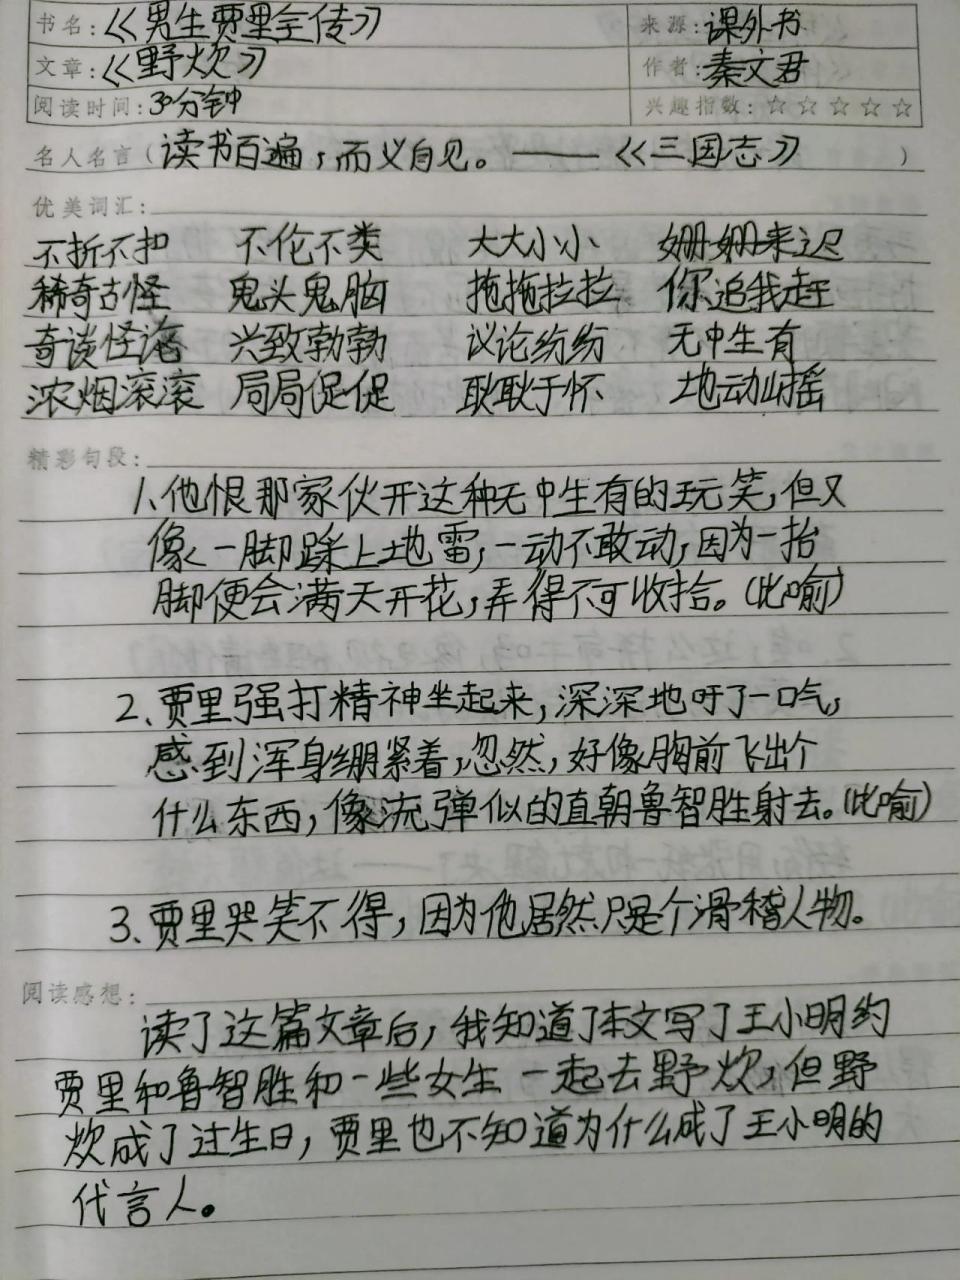 书名：《男生贾里全传》 来源：课外书
文章：《野炊》 作者：秦文君
阅读时间：30分钟 兴趣指数：☆☆☆☆☆
名人名言（读书百遍，而义自见。——《三国志》）
优美词汇：
不折不扣 不伦不类 大大小小 姗姗来迟
稀奇古怪 鬼头鬼脑 拖拖拉拉 你追我赶
奇谈怪论 兴致勃勃 议论纷纷 无中生有
浓烟滚滚 局局促促 耿耿于怀 地动山摇
精彩句段：
1、他恨那家伙开这种无中生有的玩笑，但又
像一脚踩上地雷，一动不敢动，因为一抬
脚便会满天开花，弄得不可收拾。（比喻）
2、贾里强打精神坐起来，深深地吁了一口气，
感到浑身绷紧着，忽然，好像胸前飞出个
什么东西，像流弹似的直朝鲁智胜射去。（比喻）
3、贾里哭笑不得，因为他居然只是个滑稽人物。
阅读感想：
读了这篇文章后，我知道了本文写了王小明约
贾里和鲁智胜和一些女生一起去野炊，但野
炊成了过生日，贾里也不知道为什么成了王小明的
代言人。